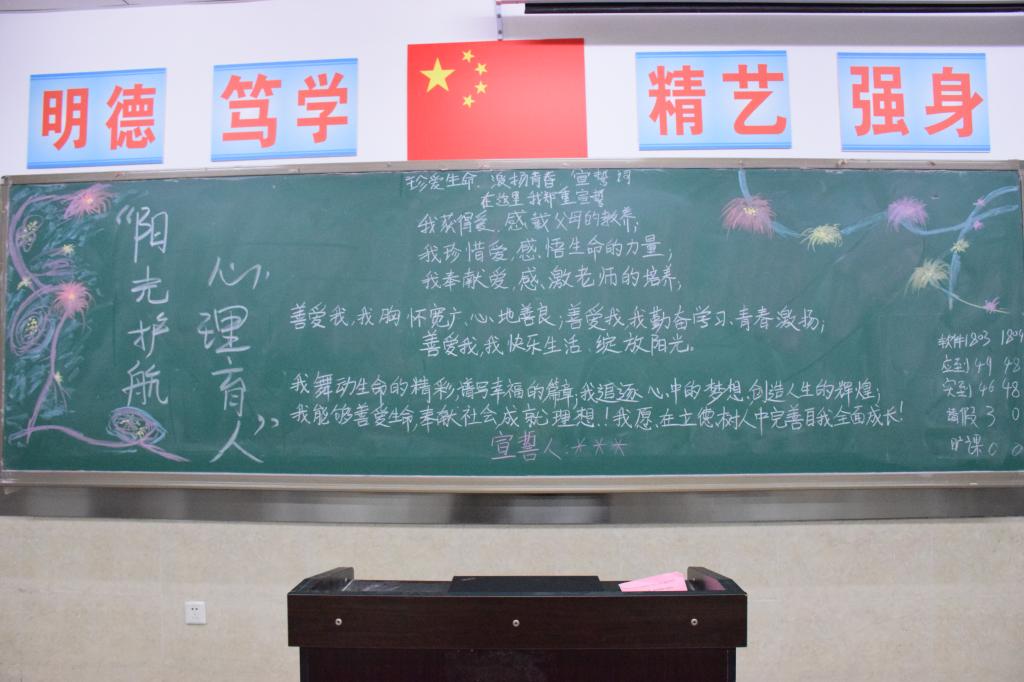 明德
笃学
精艺
强身
"阳光护航
心理育人"
珍爱生命、激扬青春 宣誓词
在这里我郑重宣誓
我获得爱,感戴父母的教养;
我珍惜爱,感悟生命的力量;
我奉献爱,感激老师的培养;
善爱我,我胸怀宽广、心地善良;善爱我,我勤奋学习、青春激扬;
善爱我,我快乐生活、绽放阳光。
我舞动生命的精彩,谱写幸福的篇章;我追逐心中的梦想,创造人生的辉煌;
我能够善爱生命,奉献社会,成就理想!我愿在立德树人中完善自我全面成长!
宣誓人:***
软件1803 1804
应到 49 48
实到 46 48
请假 3 0
旷课 0 0